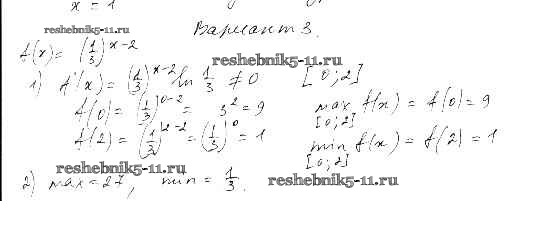 x = 1
reshebnik5-11.ru
Вариант 3.
f(x) = (1/3)^{x-2}
reshebnik5-11.ru
1) f'(x) = (1/3)^{x-2} ln 1/3 ≠ 0 [0;2]
f(0) = (1/3)^{0-2} = 3^2 = 9 max f(x) = f(0) = 9
[0;2]
f(2) = (1/3)^{2-2} = (1/3)^0 = 1 min f(x) = f(2) = 1
[0;2]
reshebnik5-11.ru
2) max = 27, min = 1/3.
reshebnik5-11.ru